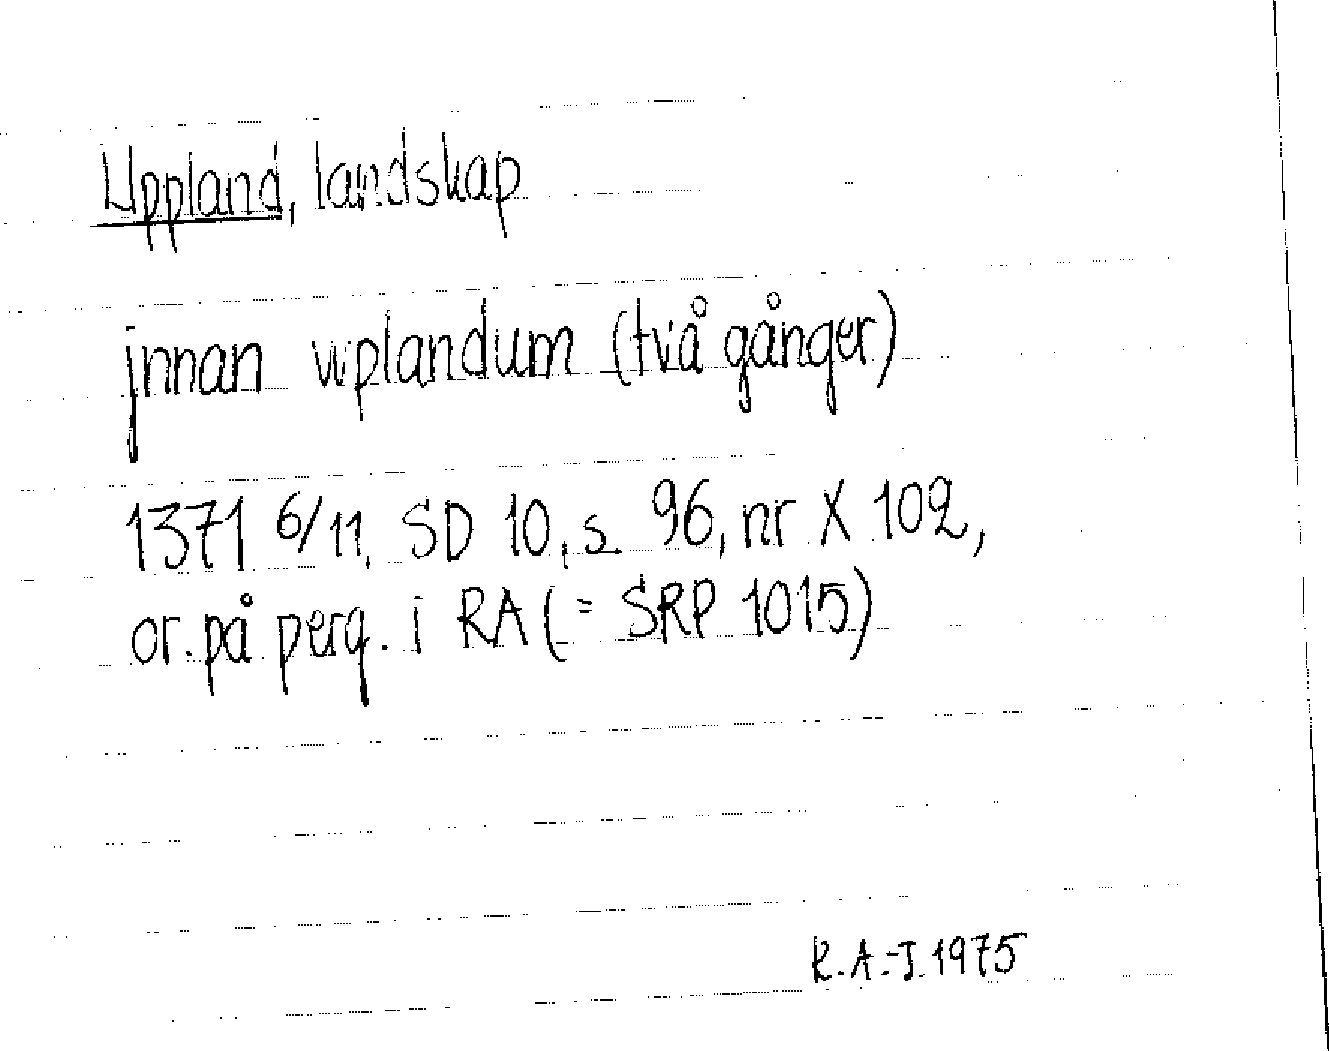 Uppland, landskap
jnnan vplandum (två gånger)
1371 6/11, SD 10, s. 96, nr X 102,
or. på perg. i RA (= SRP 1015)
R.A.-J. 1975